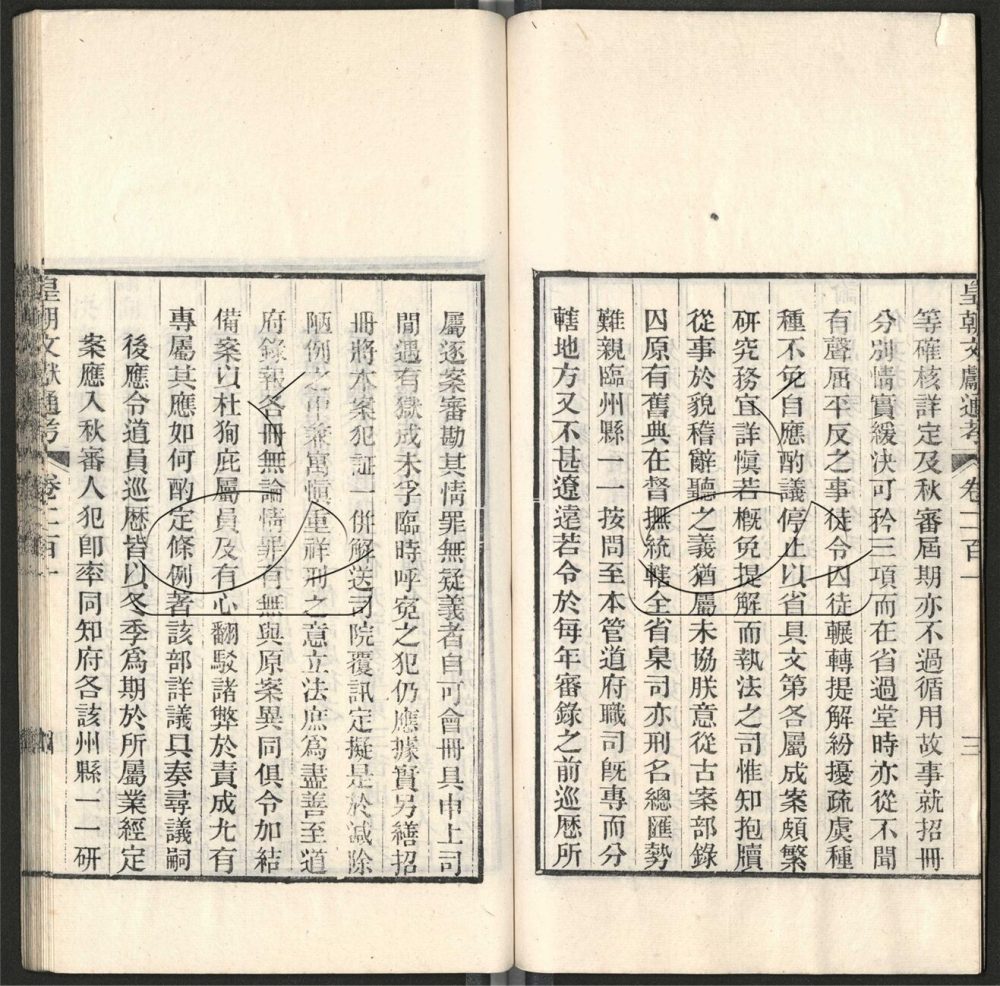 皇朝文獻通考 卷二百一 三
等確核詳定及秋審屆期亦不過循用故事就招冊
分別情實緩決可矜三項而在省過堂時亦從不聞
有聲屈平反之事徒令因徒輾轉提解紛擾疏虞種
種不免自應酌議停止以省具文第各屬成案頗繁
研究務宜詳慎若概免提解而執法之司惟知抱牘
從事於貌稽辭聽之義猶屬未協朕意從古案部錄
囚原有舊典在督撫統轄全省臬司亦刑名總匯勢
難親臨州縣一一按問至本管道府職司旣專而分
轄地方又不甚遼遠若令於每年審錄之前巡厯所
屬逐案審勘其情罪無疑義者自可會冊具申上司
閒遇有獄成未孚臨時呼寃之犯仍應據實另繕招
冊將本案犯証一併解送司院覆訊定擬是於減除
陋例之中兼寓慎重祥刑之意立法庶為盡善至道
府錄報各冊無論情罪有無與原案異同俱令加結
備案以杜狥庇屬員及有心翻駁諸弊於責成尤有
專屬其應如何酌定條例著該部詳議具奏尋議嗣
後應令道員巡厯皆以冬季爲期於所屬業經定
案應入秋審人犯卽率同知府各該州縣一一研
皇朝文獻通考 卷二百一